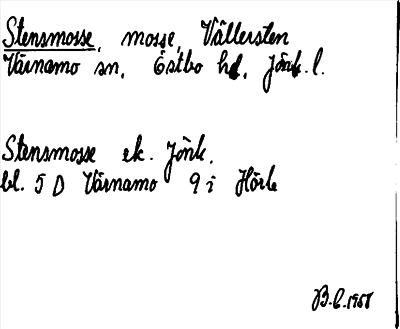 Stensmosse, mosse, Vällersten
Värnamo sn, Östbo hd, Jönk. l.
Stensmosse ek. Jönk.
bl. 5 D Värnamo 9 i Hörle
B.C.